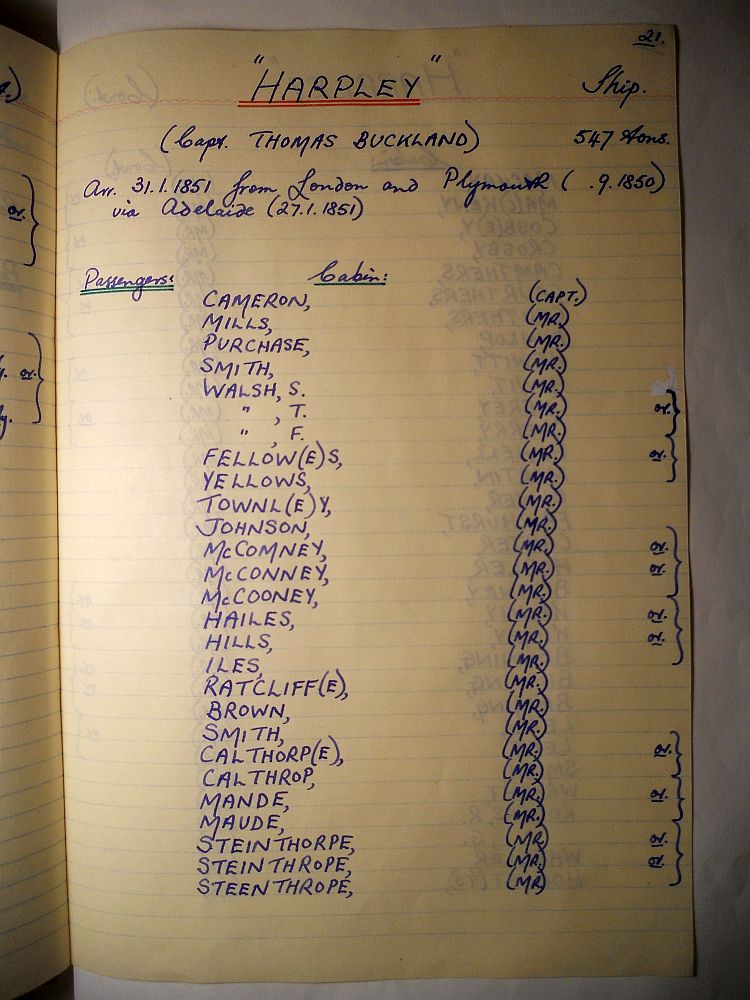 21.
"HARPLEY" Ship.
(Capt. THOMAS BUCKLAND) 547 tons.
Arr. 31.1.1851 from London and Plymouth ( .9.1850)
via Adelaide (27.1.1851)
Passengers: Cabin:
CAMERON, (CAPT.)
MILLS, (MR.)
PURCHASE, (MR.)
SMITH, (MR.)
WALSH, S. (MR.)
" , T. (MR.) or.
" , F. (MR.)
FELLOW(E)S, (MR.) or.
YELLOWS, (MR.)
TOWNL(E)Y, (MR.)
JOHNSON, (MR.)
McCOMNEY, (MR.) or.
McCONNEY, (MR.) or.
McCOONEY, (MR.)
HAILES, (MR.) or.
HILLS, (MR.) or.
ILES, (MR.)
RATCLIFF(E), (MR.)
BROWN, (MR.)
SMITH, (MR.)
CALTHORP(E), (MR.) or.
CALTHROP, (MR.)
MANDE, (MR.) or.
MAUDE, (MR.)
STEINTHORPE, (MR.) or.
STEINTHROPE, (MR.) or.
STEENTHROPE, (MR)